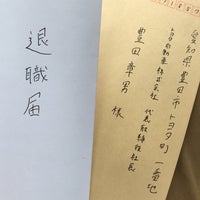 愛知県豊田市トヨタ町一番地
トヨタ自動車株式会社 代表取締役社長
豊田章男 様
退職届